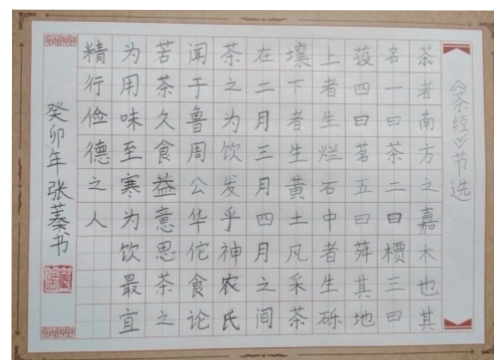 《茶经》节选
茶者南方之嘉木也其
名一曰茶二曰槚三曰
蔎四曰茗五曰荈其地
上者生烂石中者生砾
壤下者生黄土凡采茶
在二月三月四月之间
茶之为饮发乎神农氏
闻于鲁周公华佗食论
苦茶久食益意思茶之
为用味至寒为饮最宜
精行俭德之人
癸卯年张蓁书